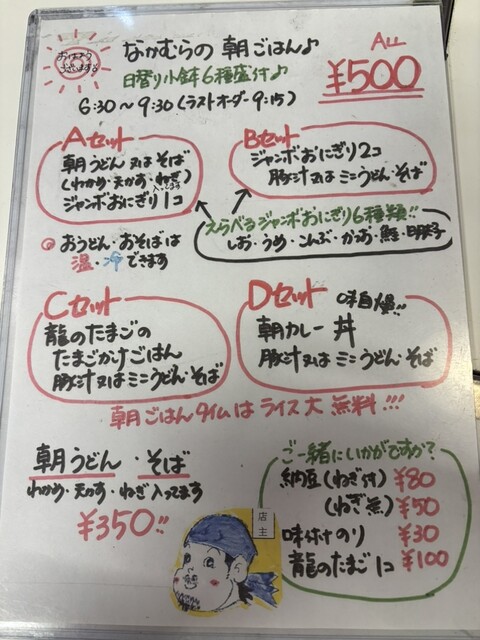 おはようございます
なかむらの 朝ごはん♪
日替り小鉢6種盛付♪
6:30～9:30(ラストオーダー9:15)
ALL
¥500
Aセット
朝うどん 又は そば
(わかめ・天かす・ねぎ)
入ってます
ジャンボおにぎり1コ
Bセット
ジャンボおにぎり2コ
豚汁又はミニうどん・そば
えらべるジャンボおにぎり6種類!!
しお・うめ・こんぶ・かつお・鮭・明太子
◎おうどん・おそばは
温・冷できます
Cセット
龍のたまごの
たまごかけごはん
豚汁又はミニうどん・そば
Dセット 味自慢!!
朝カレー丼
豚汁又はミニうどん・そば
朝ごはんタイムはライス大無料!!!
朝うどん・そば
わかめ・天かす・ねぎ入ってます
¥350!!
店主
ご一緒にいかがですか?
納豆(ねぎ付) ¥80
(ねぎ無) ¥50
味付けのり ¥30
龍のたまご1コ ¥100